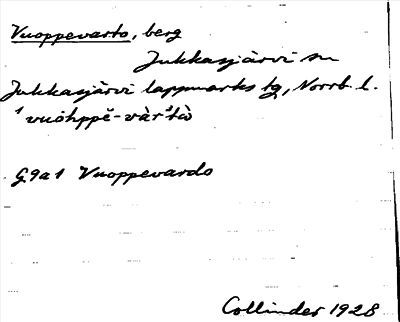 Vuoppevarto, berg
Jukkasjärvi sn
Jukkasjärvi lappmarks tg, Norrb. l.
¹vuòhppĕ-vàr¹tò
G9a1 Vuoppevardo
Collinder 1928